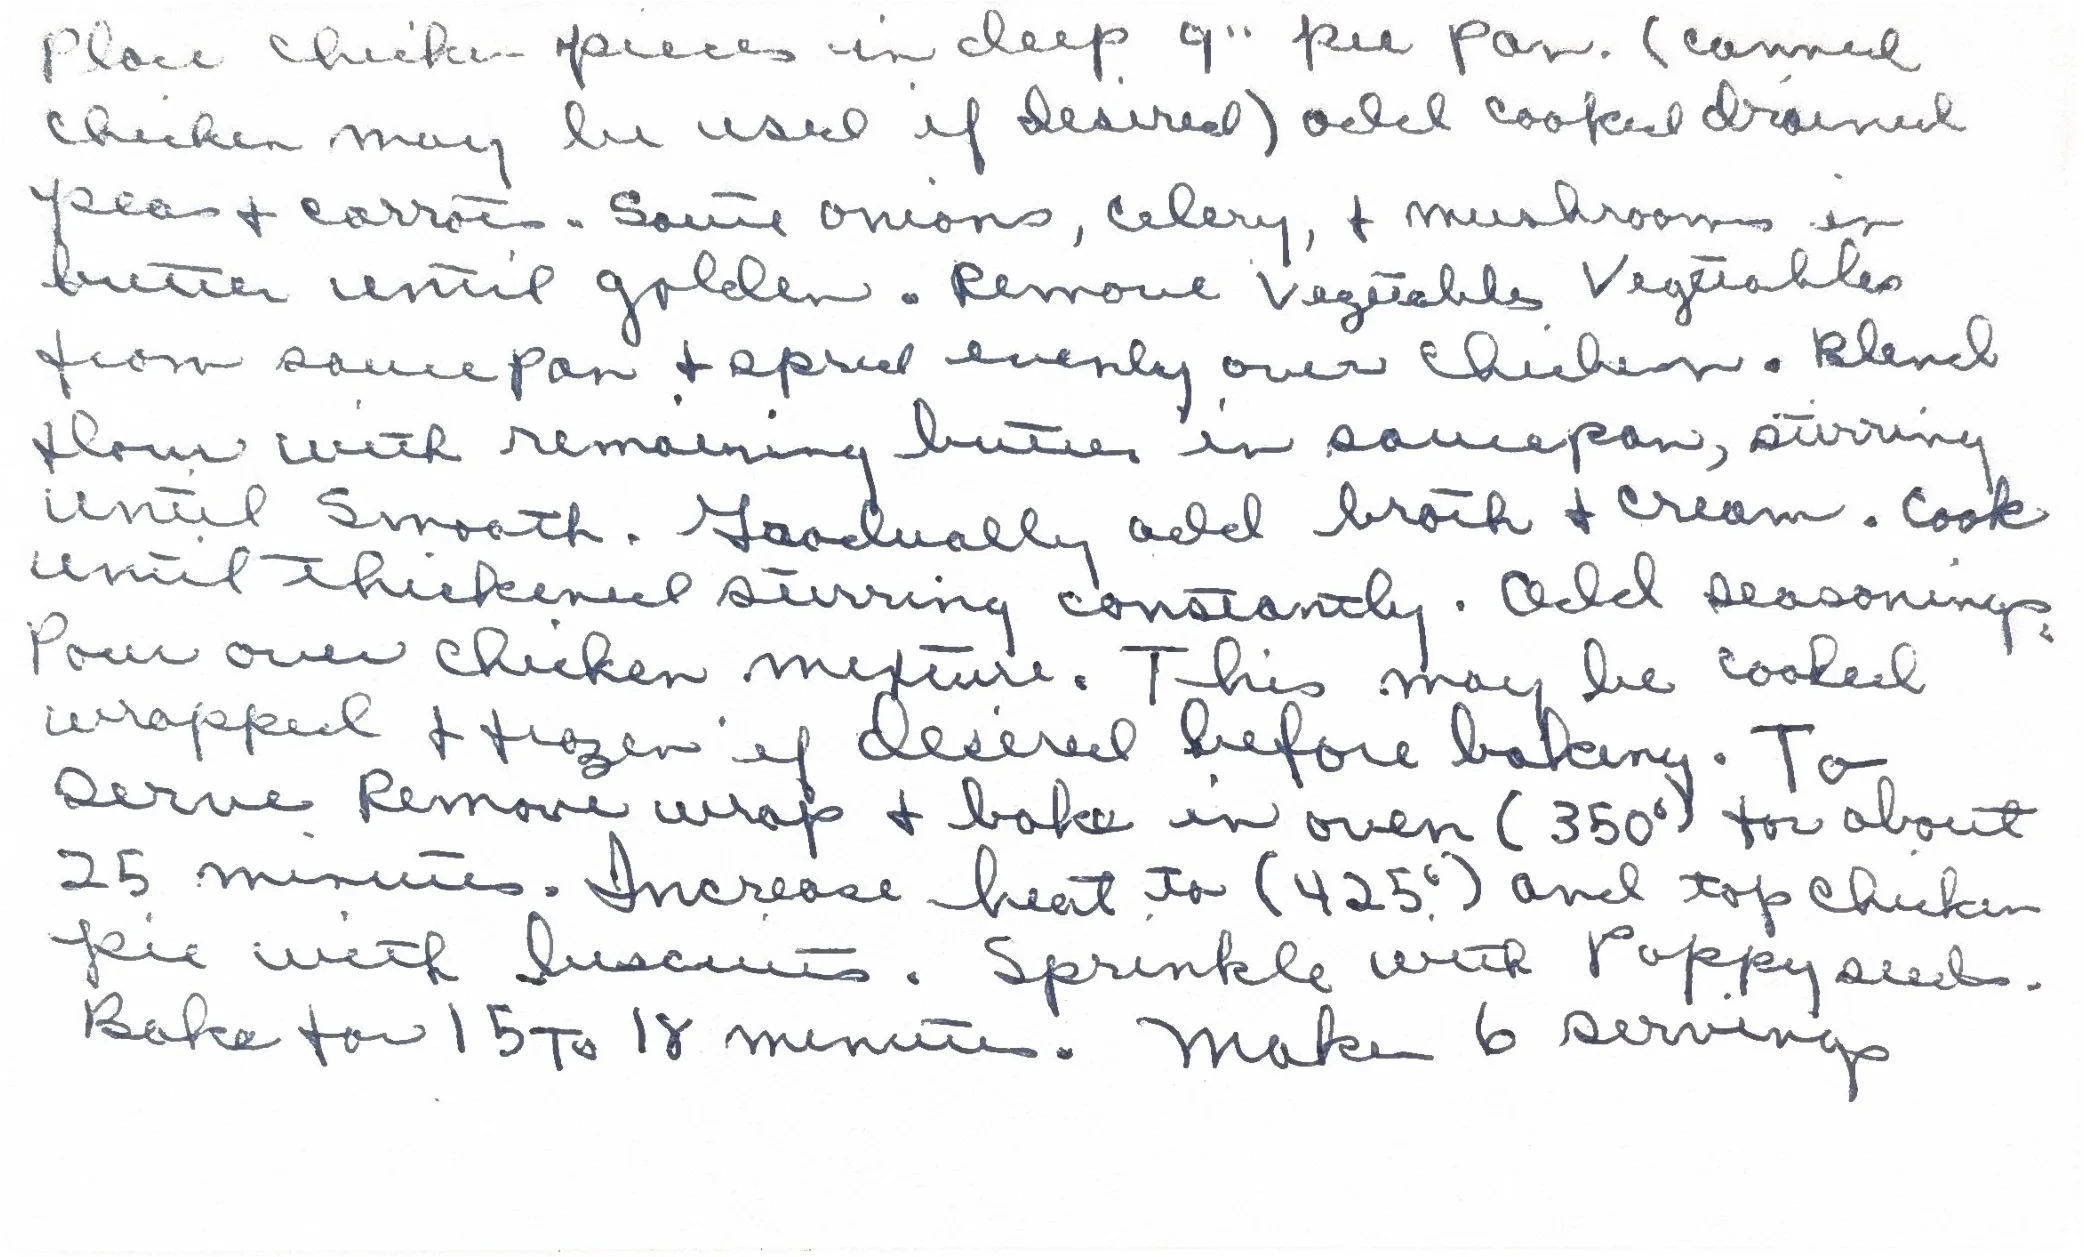 Place chicken pieces in deep 9" pie pan. (canned
chicken may be used if desired) add cooked drained
peas & carrots. Saute onions, celery, & mushrooms in
butter until golden. Remove Vegetables Vegetables
from saucepan & spred evenly over chicken. Blend
flour with remaining butter in saucepan, stirring
until smooth. Gradually add broth & cream. Cook
until thickened stirring constantly. Add seasonings.
Pour over chicken mixture. This may be cooked
wrapped & frozen if desired before baking. To
serve Remove wrap & bake in oven (350°) for about
25 minutes. Increase heat to (425°) and top chicken
pie with buscuits. Sprinkle with Poppy seeds.
Bake for 15 To 18 minutes. Makes 6 servings